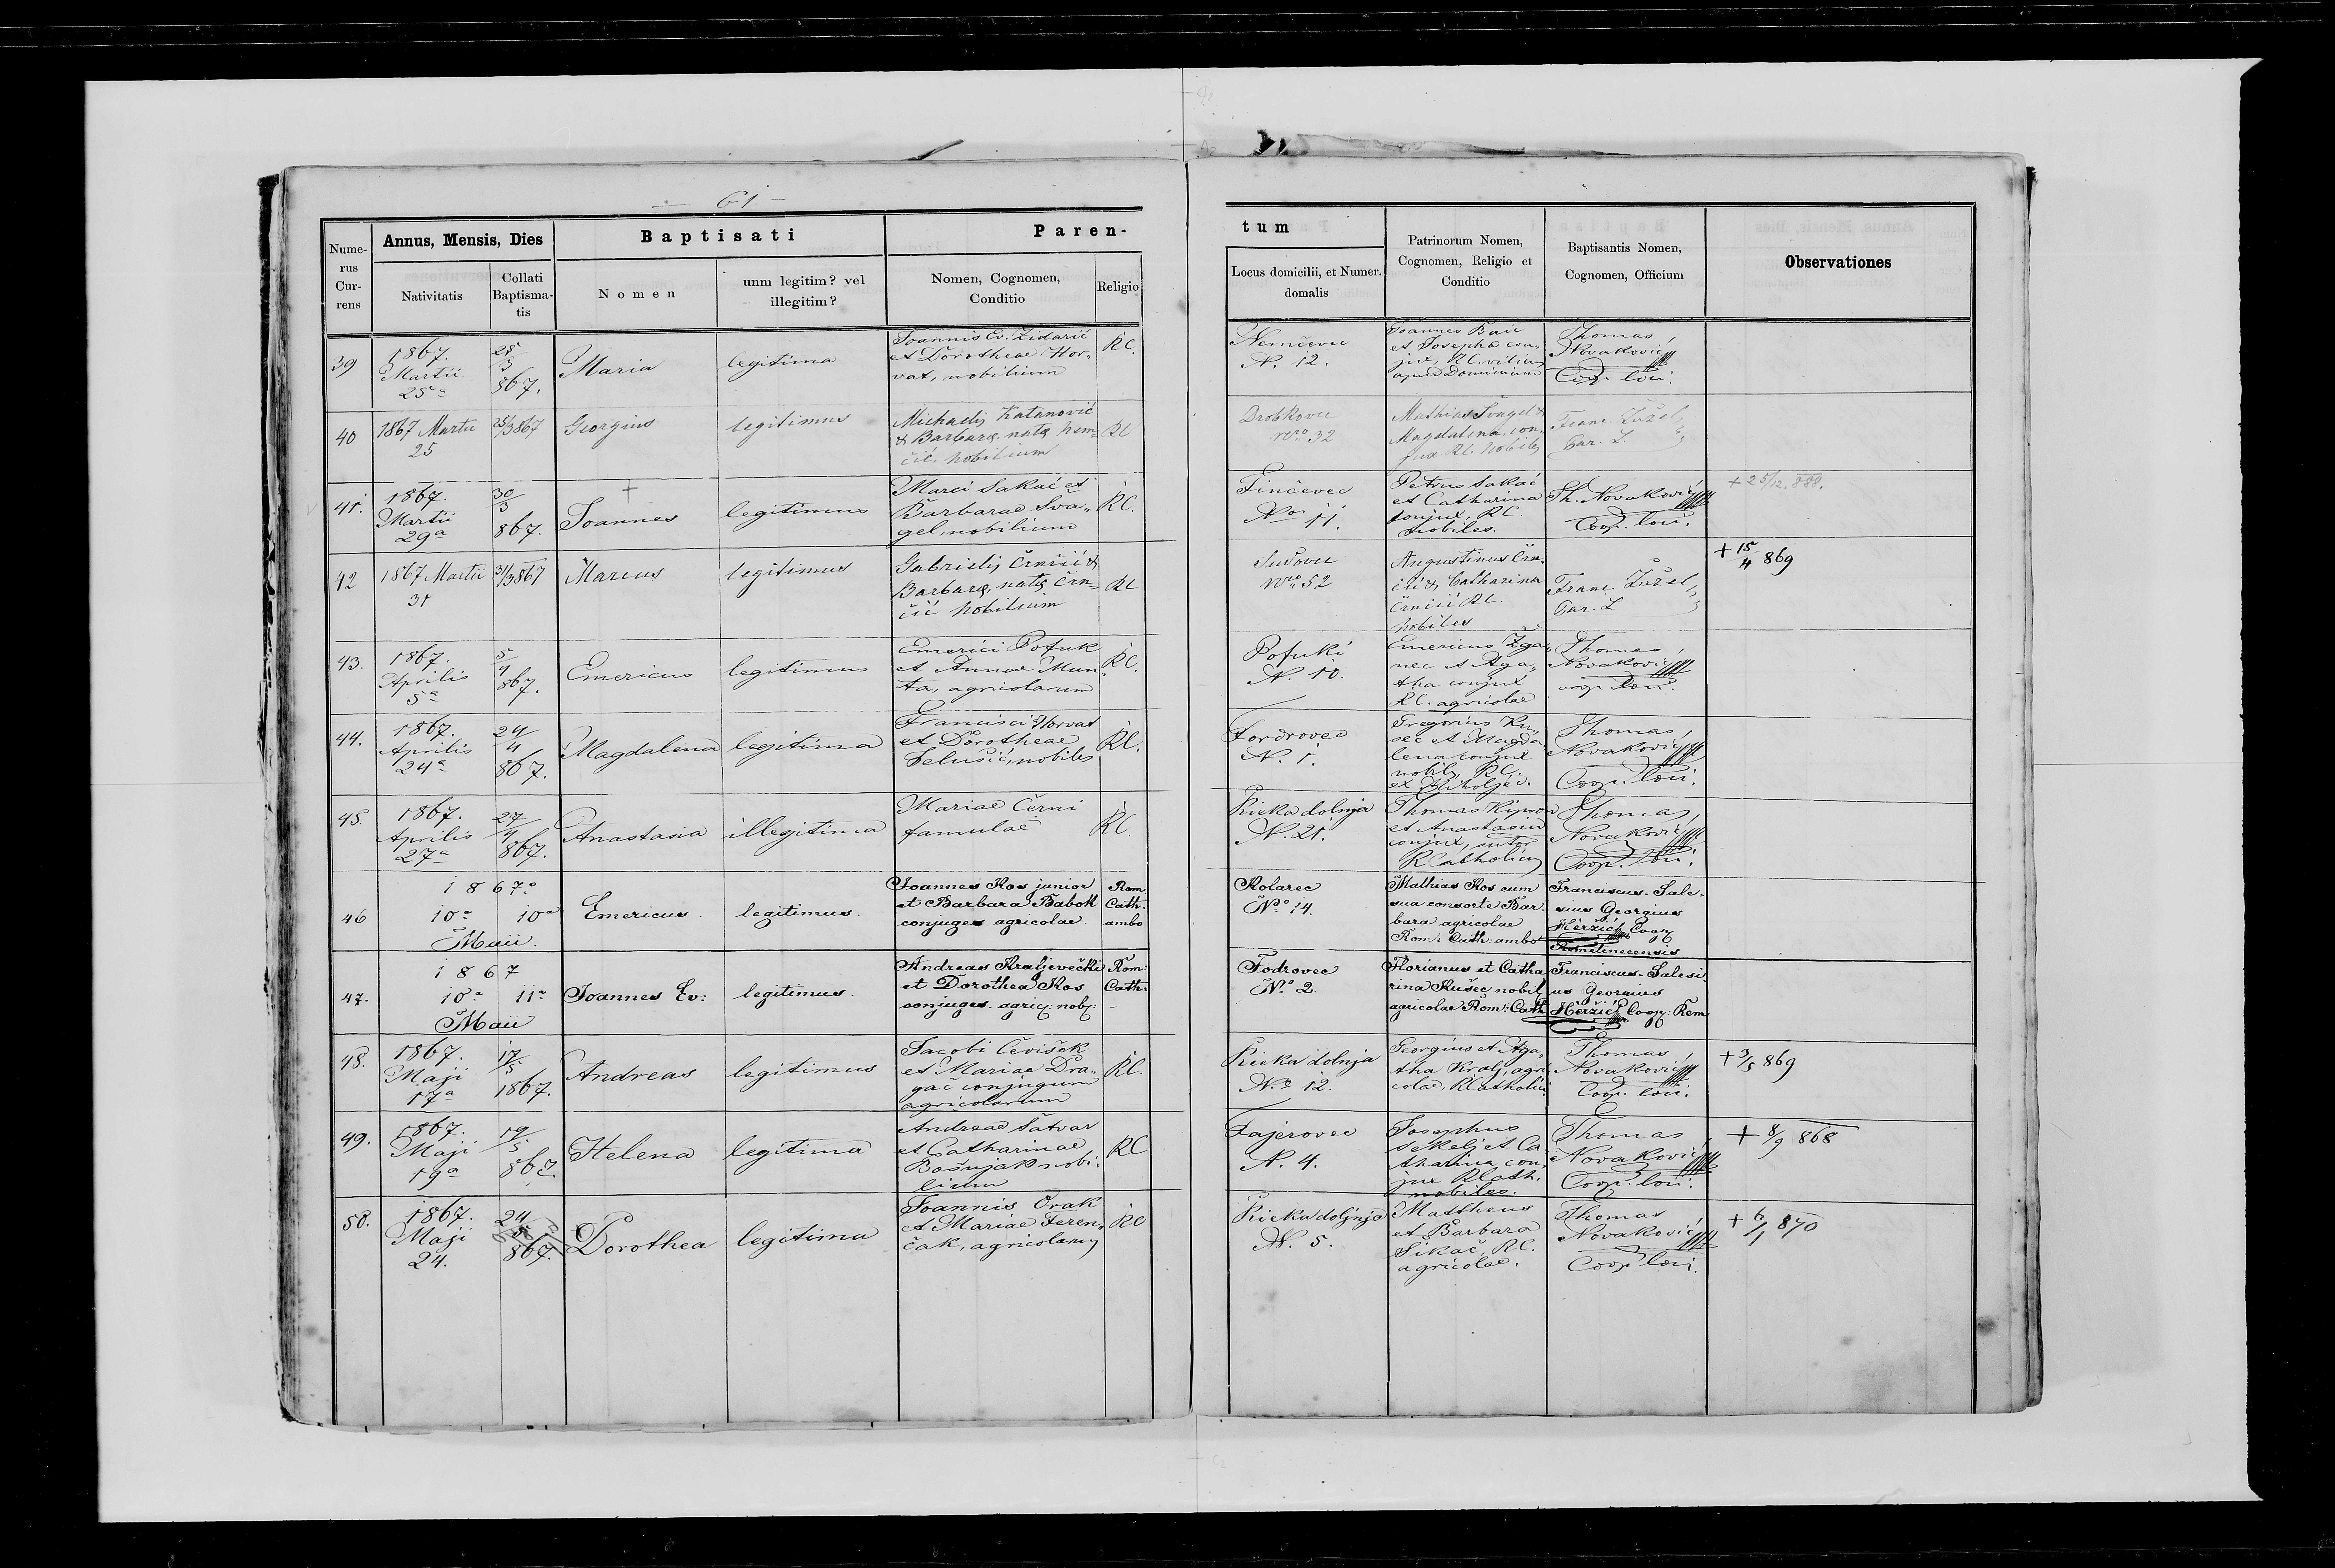 — 61 —
Numerus Currens
Annus, Mensis, Dies
Nativitatis
Collati Baptismatis
Baptisati
Nomen
unm legitim? vel illegitim?
Paren-
Nomen, Cognomen, Conditio
Religio
tum
Locus domicilii, et Numer. domalis
Patrinorum Nomen, Cognomen, Religio et Conditio
Baptisantis Nomen, Cognomen, Officium
Observationes
39
1867.
Martii
25a
25/3
867.
Maria
legitima
Joannis Ev. Židarić
et Dorotheae Hor„
vat, nobilium
RC.
Nemčevec
N. 12.
Joannes
et Josepha con„
jux, RC.
apud Dominium
Thomas
Novaković
Coop. loci.
40
1867 Martii
25
25/3 867
Georgius
legitimus
Michaelis Katanović
& Barbarę, natę
čić, nobilium
RC
Drobkovec
Nro 32
Mathias Švagel &
Magdalena con„
jux RC. nobiles
Franc. Žužel
Par. L.
41.
1867.
Martii
29a
30/3
867.
+
Joannes
legitimus
Marci Sakač et
Barbarae Šva„
gel, nobilium
RC.
Finčevec
Nro 11.
Petrus Sakač
et Catharina
conjux, RC.
nobiles.
Th. Novaković
Coop. loci.
+ 25/12. 888.
42
1867 Martii
31
31/3 867
Marcus
legitimus
Gabrielis Črnčić &
Barbarę, natę Črn=
čić nobilium
RC
Sudovec
Nro 52
Augustinus Črn„
čić & Catharina
Črnčić RC.
nobiles
Franc. Žužel
Par. L
+ 15/4 869
43.
1867.
Aprilis
5a
5/4
867.
Emericus
legitimus
Emerici Pofuk
et Annae Mun„
ta, agricolarum
RC.
Pofuki
N. 10.
Emericus Žga„
nec et Aga„
tha conjux
RC. agricolae
Thomas
Novaković
coop loci.
44.
1867.
Aprilis
24a
24/4
867.
Magdalena
legitima
Francisci Horvat
et Dorotheae
Selušić, nobiles
RC.
Fordrovec
N. 1.
Gregorius Ku„
šec et Magda„
lena conjux
nobiles, RC.
Thomas
Novaković
Coop. loci.
45.
1867.
Aprilis
27a
27/4
867.
Anastasia
illegitima
Mariae Černi
famulae
RC.
Rieka dolnja
N. 21.
Thomas Kipson
et Anastasia
conjux, sutor
RCatholicus
Thomas
Novaković
Coop. loci.
46
1867o
10a 10a
Maii.
Emericus.
legitimus.
Joannes Kos junior
et Barbara Babok
conjuges agricolae
Rom.
Cath.
ambo
Kolarec
No 14.
Mathias Kos cum
sua consorte Bar„
bara agricolae
Rom: Cath: ambo
Franciscus-Sale-
sius Georgius
Heržić Coop
Remetinecensis
47.
1867
10a 11a
Maii
Joannes Ev:
legitimus.
Andreas Kraljevečki
et Dorothea Kos
conjuges. agric: nob:
Rom:
Cath:
-
Fodrovec
No 2.
Florianus et Catha
rina Kušec nobil
agricolae Rom: Cath
Franciscus-Salesi
us Georgius
Heržić Coop: Rem
48.
1867.
Maji
17a
17/5
1867.
Andreas
legitimus
Jacobi Čevišek
et Mariae Dra„
gač conjugum
agricolarum
RC.
Rieka dolnja
No 12.
Georgius et Aga„
tha Kralj, agri„
colae, RCatholici.
Thomas
Novaković
Coop. loci.
+ 3/5 869
49.
1867.
Maji
19a
19/5
867.
Helena
legitima
Andreae Šatvar
et Catharinae
Bošnjak nobi„
lium
RC
Fajerovec
N. 4.
Josephus
Sekelj et Ca
tharina con„
jux RCath.
nobiles.
Thomas
Novaković
Coop. loci.
+ 8/9 868
50.
1867.
Maji
24.
24/5
867.
Dorothea
legitima
Joannis Orak
et Mariae Feren„
čak, agricolarum
RC
Rieka doljnja
N. 5.
Mattheus
et Barbara
Sikač, RC.
agricolae.
Thomas
Novaković
Coop loci.
+ 6/1 870